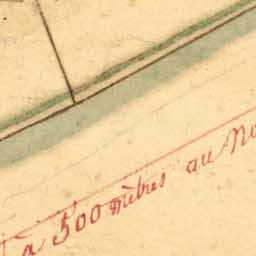 à 500 mètres au No